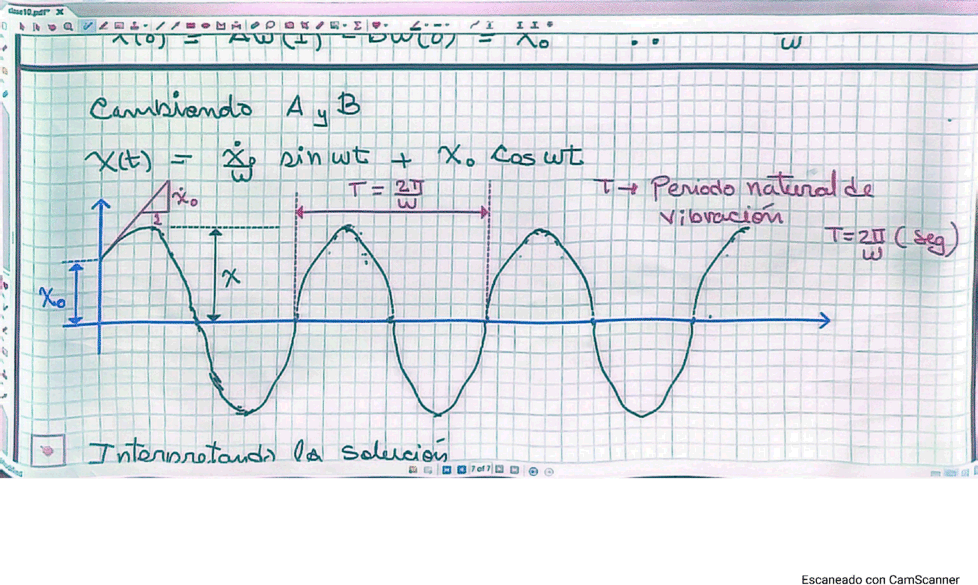 clase10.pdf* X
ẋ(0) = Aω(1) - Bω(0) = ẋ₀ ∴ ω
Cambiando A y B
X(t) = ẋ₀/ω sin ωt + x₀ Cos ωt
T = 2π/ω
T → Periodo natural de
vibración
T = 2π/ω (seg)
ẋ₀
1
x₀
X
Interpretando la solución
7 of 7
Escaneado con CamScanner